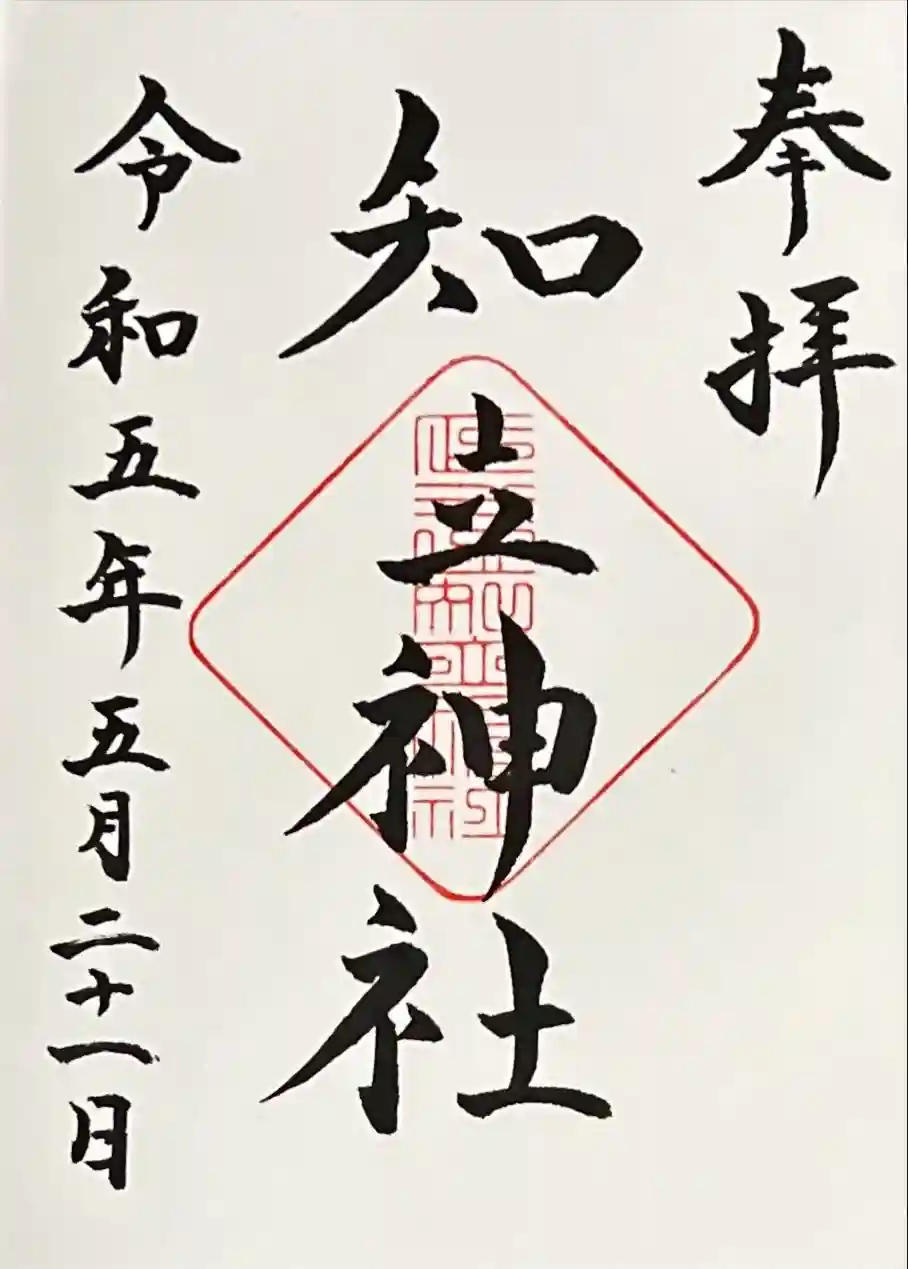 奉拝
知立神社
令和五年五月二十一日